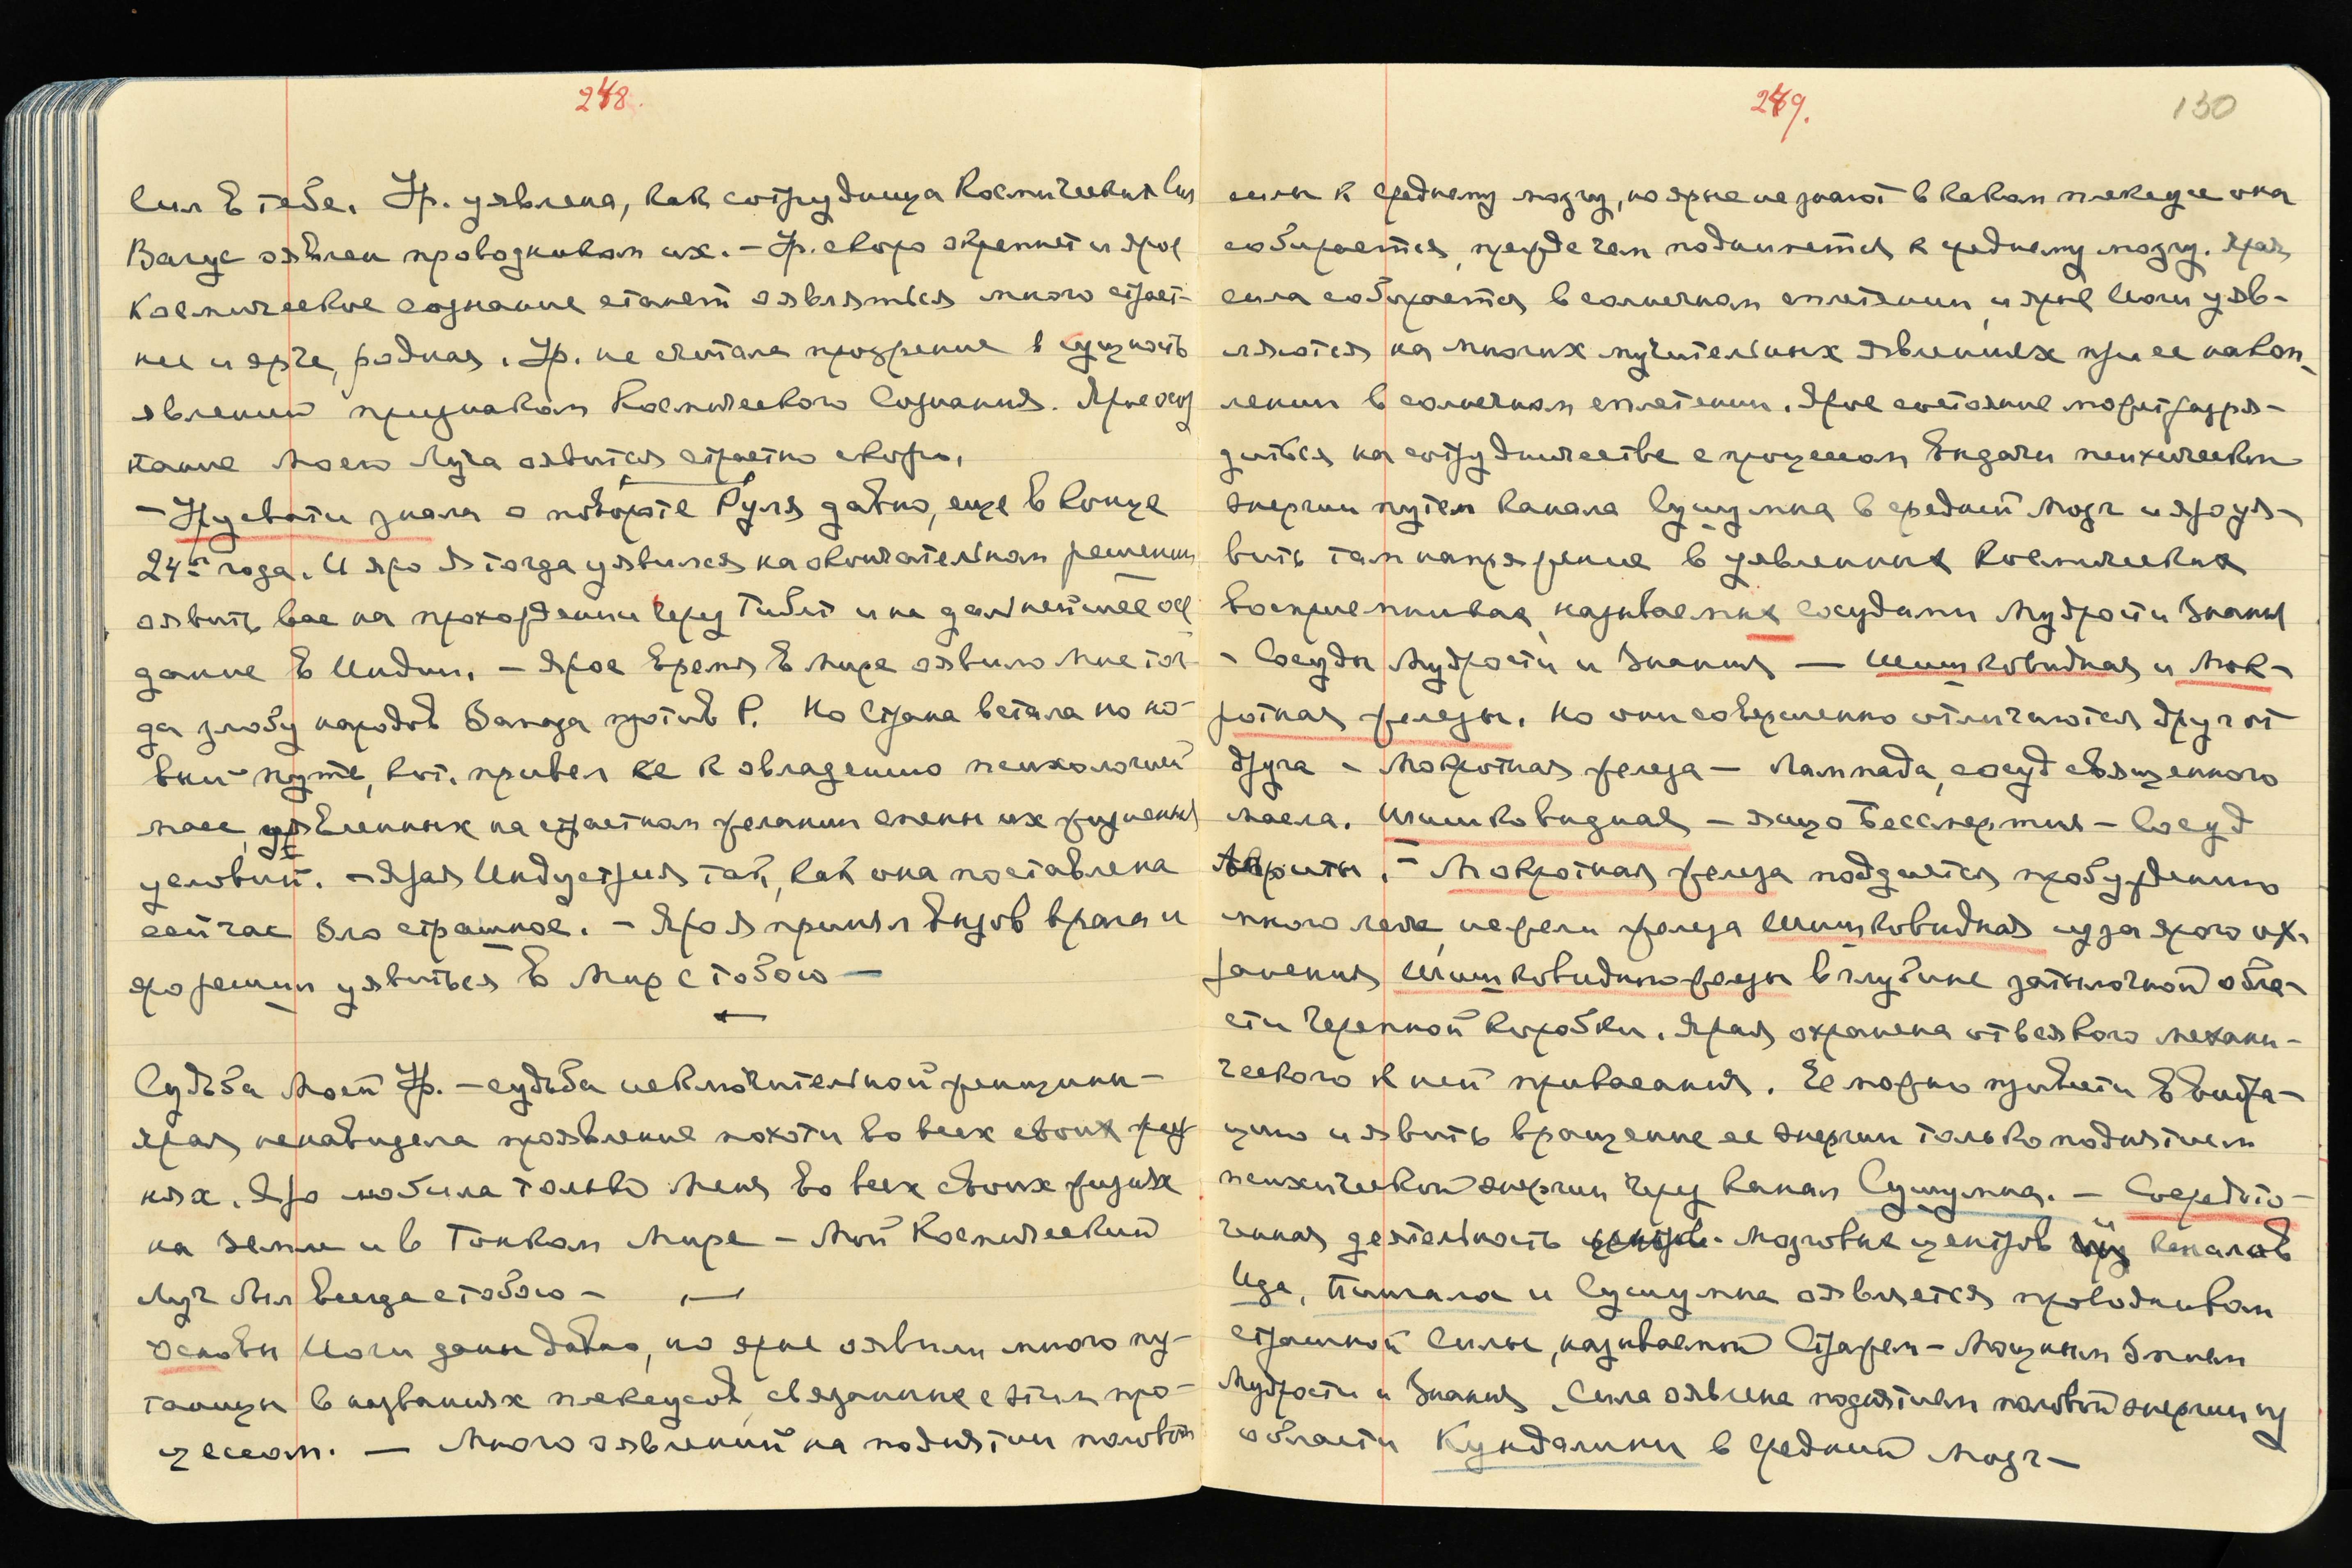 248.
Сил в тебе. Ур. уявлена, как сотрудница Космических Сил
Вагус оявлен проводником их. – Ур. скоро окрепнет и ярое
Космическое сознание станет оявляться много страст-
нее и ярче, родная. Ур. не считала прозрение в сущность
явлений признаком Космического Сознания. Ярое осоз
нание Моего Луча оявится страстно скоро.
– Урусвати знала о повороте Руля давно, еще в конце
24го года. И яро Я тогда уявился на окончательном решении
оявить вас на прохождении через Тибет и на дальнейшее ос
дание в Индии. – Ярое время в Мире оявило Мне тог-
да злобу народов Запада против Р. Но Страна встала на но-
вый путь, кот. привел ее к овладению психологией
масс, уявленных на страстном желании смены их жизненных
условий. – Ярая Индустрия там, как она поставлена
сейчас Зло страшное. – Яро Я принял вызов врага и
яро решил уявиться в Мир с тобою –
Судьба Моей Ур. – судьба исключительной женщины –
Ярая ненавидела проявление похоти во всех своих жиз
нях. Яро любила только Меня во всех своих жизнях
на Земле и в Тонком Мире – Мой Космический
Луч был всегда с тобою –
Основы Йоги даны давно, но ярые оявили много пу-
таницы в названиях плексусов, связанные с этим про-
цессом. – Много оявлений на поднятии половой
249.
130
силы к среднему мозгу, но ярые не знают в каком плексусе она
собирается, прежде чем поднимется к среднему мозгу. Ярая
сила собирается в солнечном сплетении, и ярые Йоги уяв-
ляются на многих мучительных явлениях при ее накоп-
лении в солнечном сплетении. Ярое состояние может разря-
диться на сотрудничестве с процессом выдачи психической
энергии путем канала Сушумна в средний мозг и яро уя-
вить там напряжение в уявленных космических
восприемниках, называемых Сосудами Мудрости Знания
– Сосуды Мудрости и Знания — Шишковидная и Мок-
ротная железы. Но они совершенно отличаются друг от
друга – Мокротная железа – Лампада, сосуд священного
масла. Шишковидная – яйцо Бессмертия – Сосуд
Амриты. – Мокротная железа поддается пробуждению
много легче, нежели железа Шишковидная из за ярого ох-
ранения Шишковидной железы в глубине затылочной обла-
сти черепной коробки. Ярая охранена от всякого механи-
ческого к ней прикасания. Ее можно привести в вибра-
цию и явить вращение ее энергии только поднятием
психической энергии через канал Сушумна. – Сосредото-
ченная деятельность мозговых центров и каналов
Ида, Пингала и Сушумна оявляется проводником
страшной Силы, называемой Стражем – Мощным Змием
Мудрости и Знания. Сила оявлена поднятием половой энергии из
области Кундалини в средний мозг –